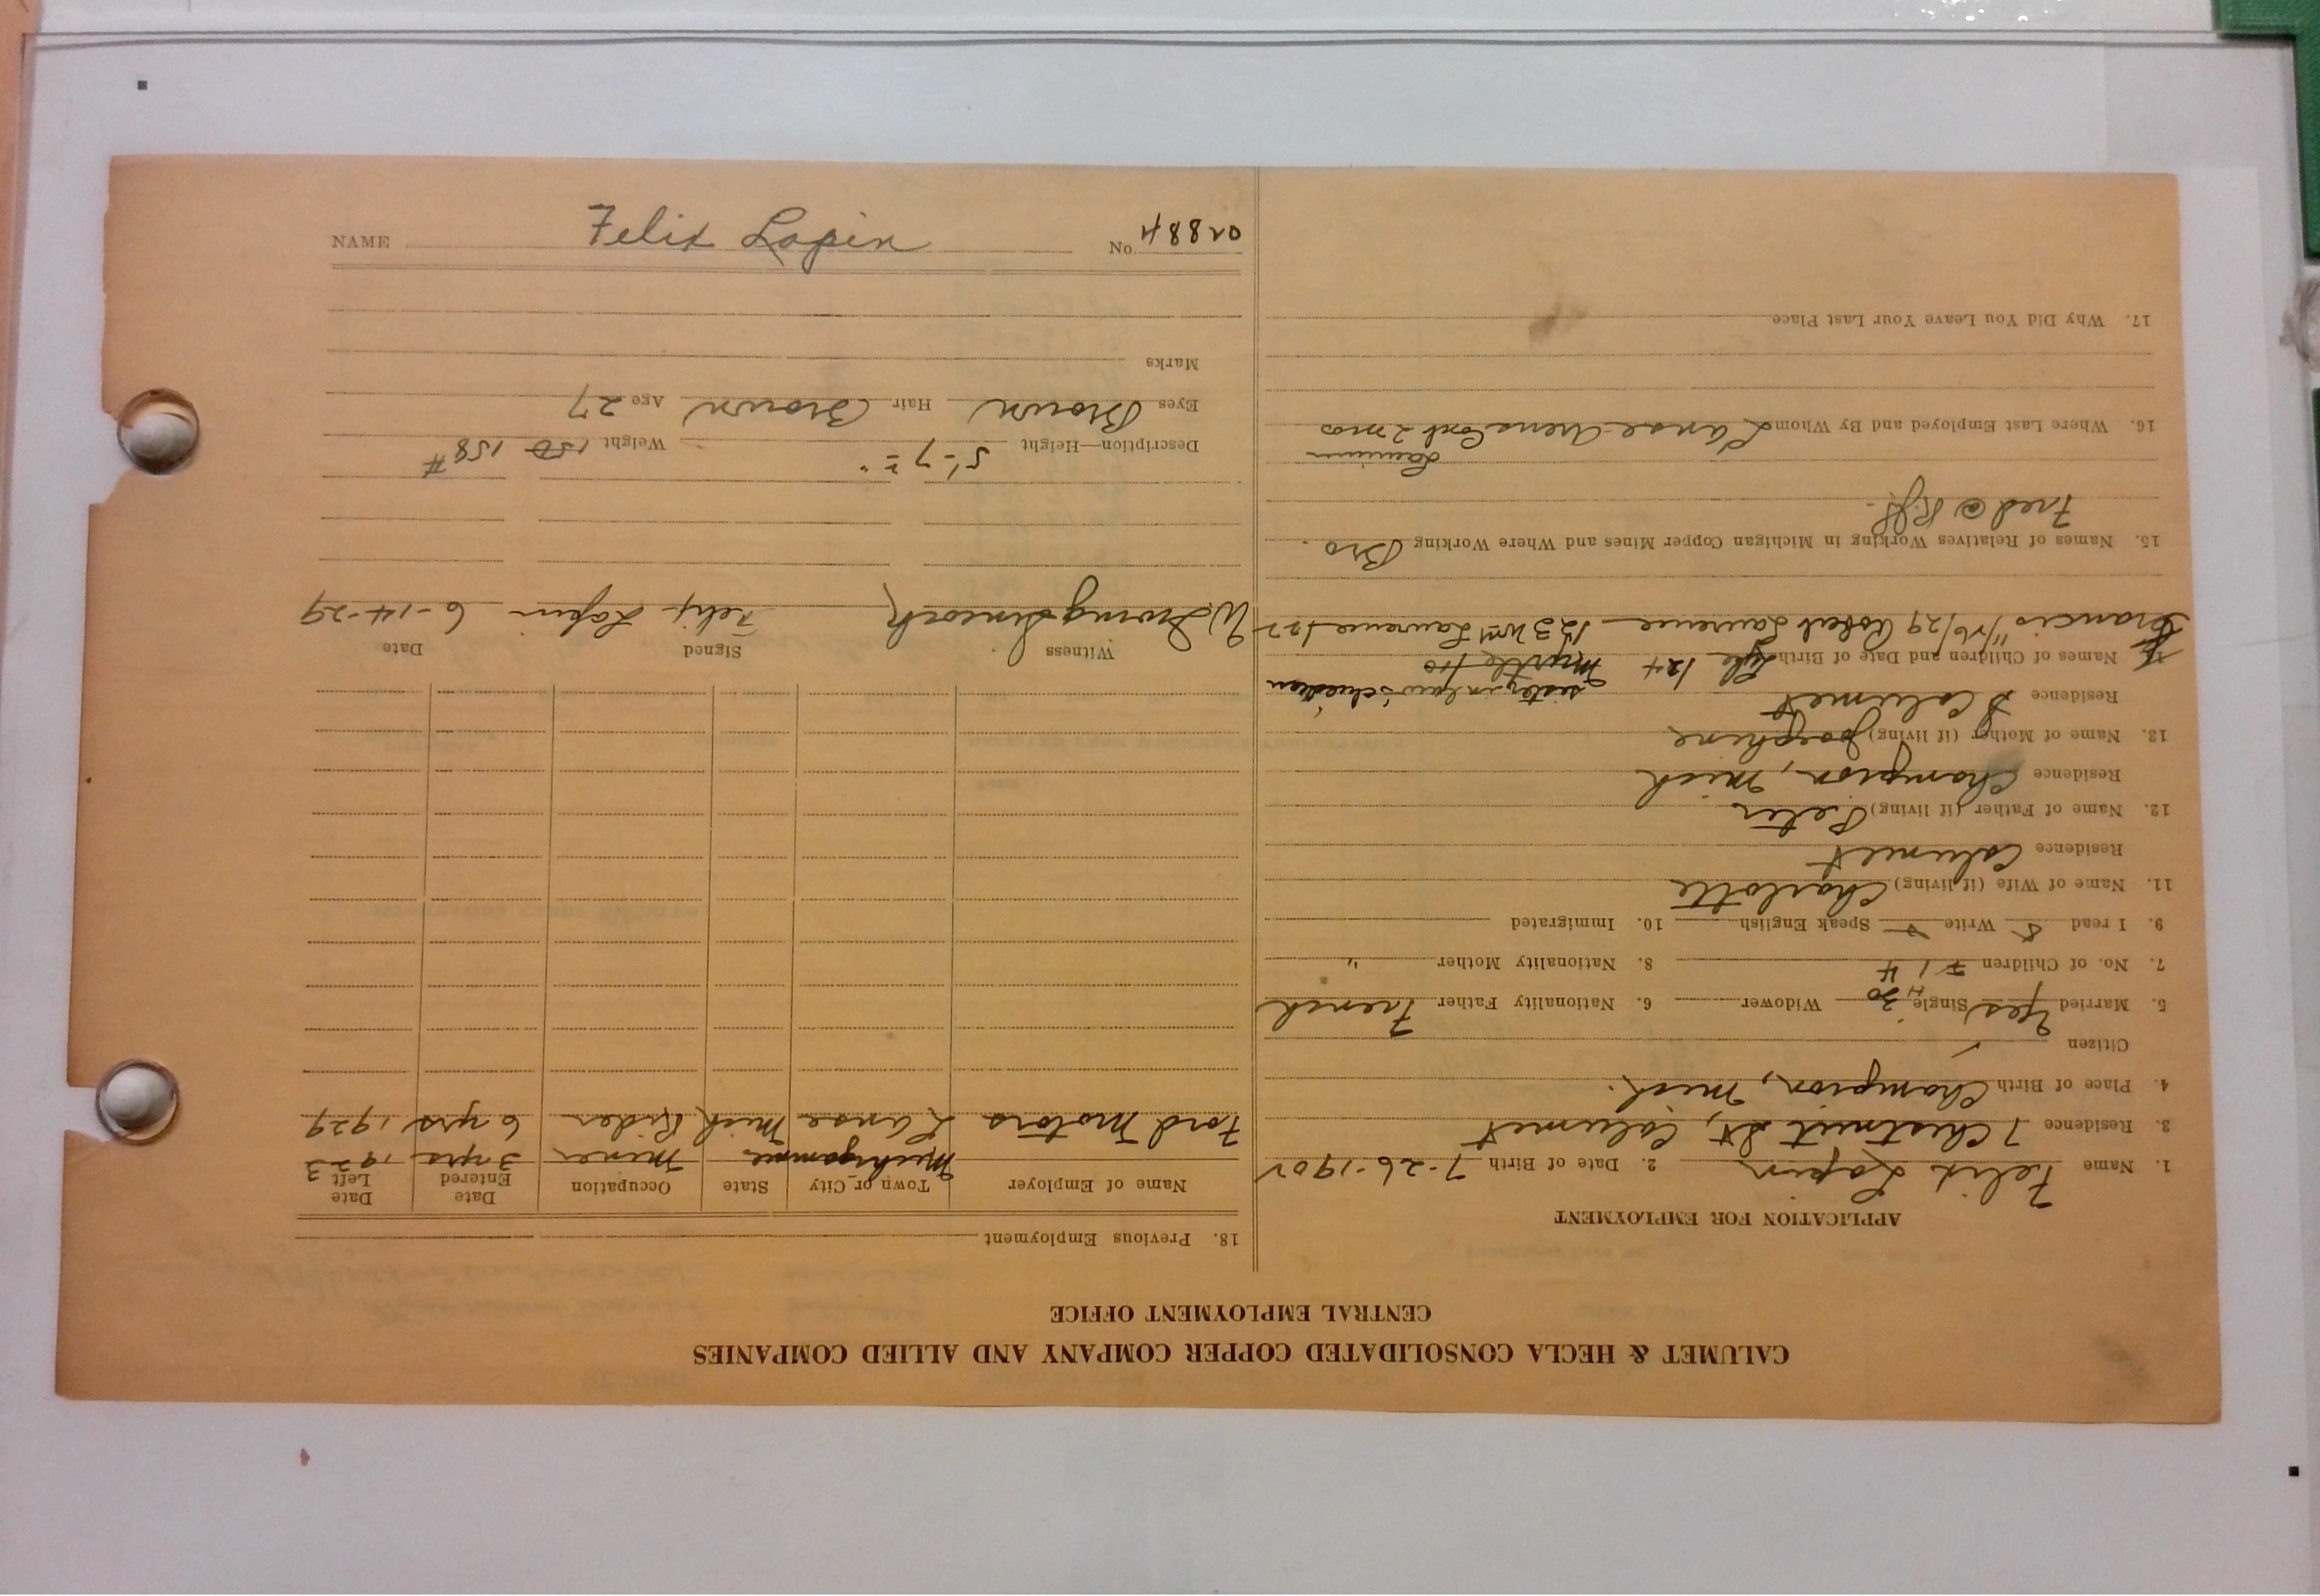 CALUMET & HECLA CONSOLIDATED COPPER COMPANY AND ALLIED COMPANIES
CENTRAL EMPLOYMENT OFFICE
APPLICATION FOR EMPLOYMENT
1. Name Felix Lapin 2. Date of Birth 7-26-1902
3. Residence 7 Chestnut St, Calumet
4. Place of Birth Champion, Mich.
Citizen
5. Married Yes Single Widower 6. Nationality Father French
7. No. of Children 4 8. Nationality Mother "
9. I read Write Speak English 10. Immigrated
11. Name of Wife (if living) Charlotte
Residence Calumet
12. Name of Father (if living) Peter
Residence Champion, Mich
13. Name of Mother (if living) Josephine
Residence Calumet sister in law's children
14. Names of Children and Date of Birth Lyle 124 Myrtle
Francis 11/26/29 Robert Lawrence 123 Wm Lawrence
15. Names of Relatives Working in Michigan Copper Mines and Where Working Bro.
Fred @
16. Where Last Employed and By Whom Lanse 2 mos
17. Why Did You Leave Your Last Place
18. Previous Employment
Name of Employer Town or City State Occupation Date Entered Date Left
Michigamme Miner 3 yrs 1923
Ford Motors Lanse Mich Rider 6 yrs 1929
Witness Signed Date
Felix Lapin 6-14-29
Description—Height 5'-7" Weight 150 158#
Eyes Brown Hair Brown Age 27
Marks
NAME Felix Lapin No 01884